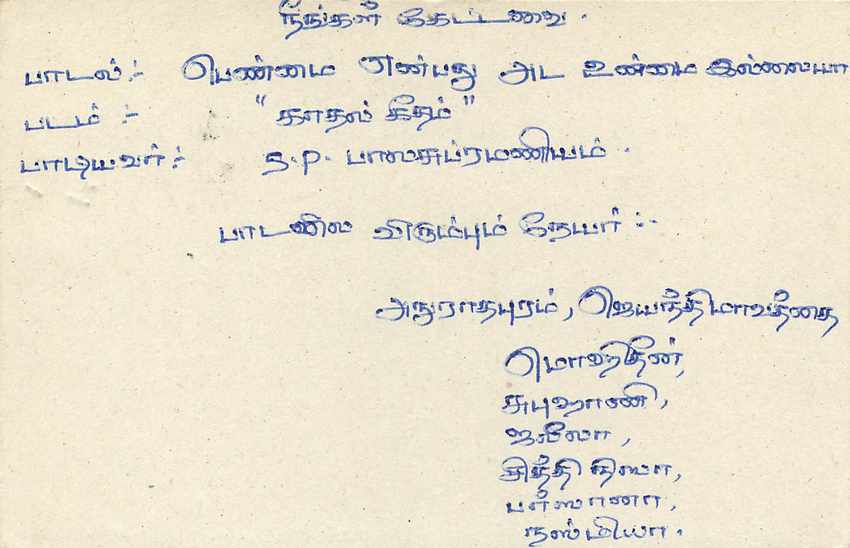 நீங்கள் கேட்டவை.
பாடல்:- பெண்மை என்பது அட உண்மை இல்லையா
படம் :- "காதல் கீதம்"
பாடியவர்:- S.P. பாலசுப்ரமணியம்.
பாடலை விரும்பும் நேயர் :-
அநுராதபுரம், ஜெயந்திமாவத்தை
மொஹிதீன்,
சுபுஹானி,
ஜலீலா,
சித்தி நிஸா,
பர்ஸானா,
நஸ்மியா.